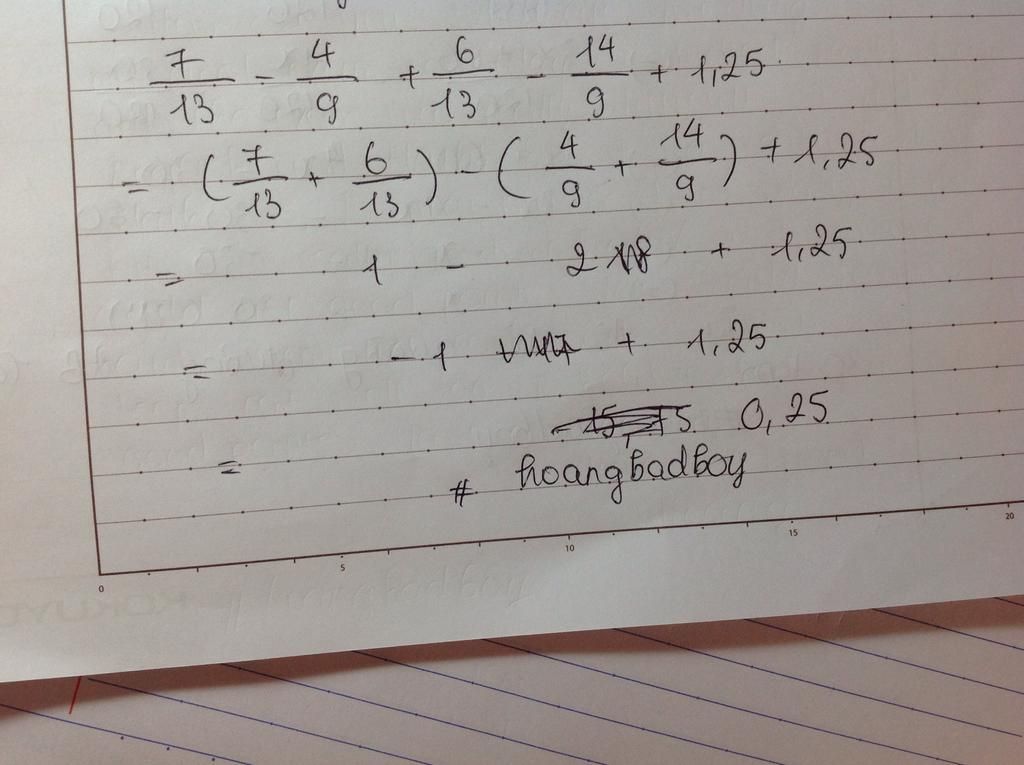 7/13 - 4/9 + 6/13 - 14/9 + 1,25
= (7/13 + 6/13) - (4/9 + 14/9) + 1,25
= 1 - 2 + 1,25
= - 1 + 1,25
= 0,25
# hoangbadboy
0 5 10 15 20